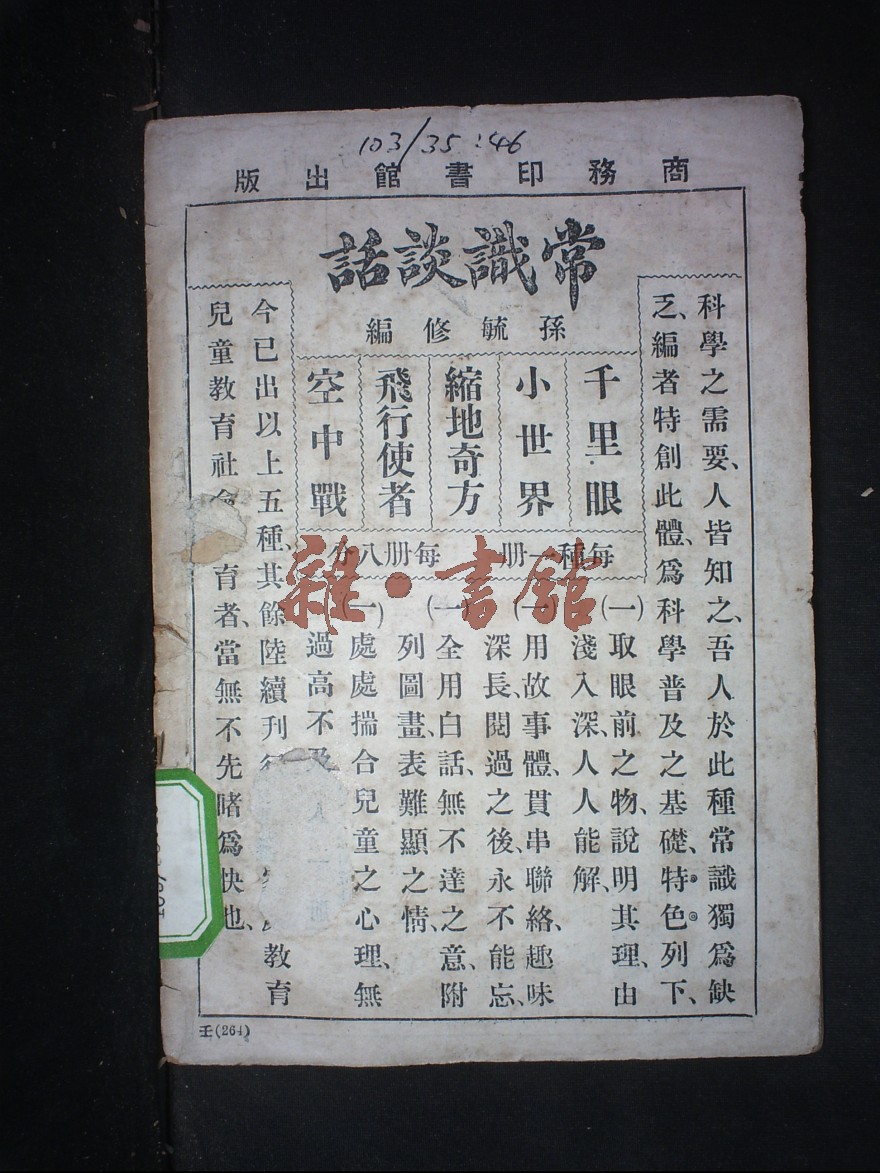 103/35:46
商務印書館出版
常識談話
孫毓修編
科學之需要、人皆知之、吾人於此種常識獨爲缺
乏、編者特創此體、爲科學普及之基礎、特色列下、
千里眼
小世界
縮地奇方
飛行使者
空中戰
每種一册 每册八分
(一)取眼前之物、說明其理、由
淺入深、人人能解、
(一)用故事體、貫串聯絡、趣味
深長、閱過之後、永不能忘、
(一)全用白話、無不達之意、附
列圖畫、表難顯之情、
(一)處處揣合兒童之心理、無
過高不及
今已出以上五種、其餘陸續刊行 教育
兒童教育社會 育者、當無不先睹爲快也、
壬(264)
雜·書館